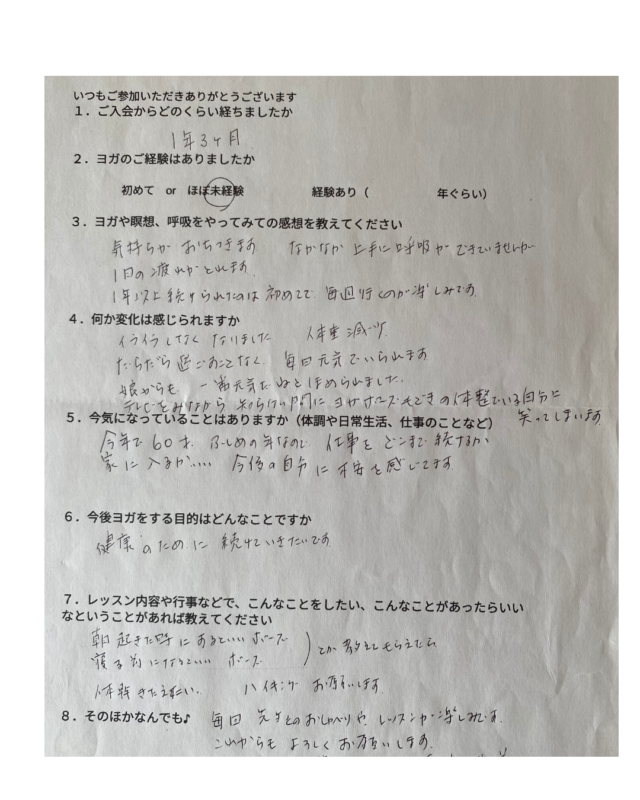 いつもご参加いただきありがとうございます
1．ご入会からどのくらい経ちましたか
1年3ヶ月
2．ヨガのご経験はありましたか
初めて or ほぼ未経験 経験あり（ 年ぐらい）
3．ヨガや瞑想、呼吸をやってみての感想を教えてください
気持ちが おちつきます なかなか 上手に呼吸が できていませんが
1日の疲れがとれます
1年以上続けられたのは初めてで 毎週行くのが楽しみです
4．何か変化は感じられますか
イライラしなく なりました 体重減少
だらだら過ごすことなく、毎日元気でいられます
娘からも 一番元気だねとほめられました。
テレビをみながら 知らない間に ヨガポーズもどきの体勢でいる自分に
笑ってしまいます
5．今気になっていることはありますか（体調や日常生活、仕事のことなど）
今年で60才 ふしめの年なので 仕事を どこまで続けるか
家に入るか…… 今後の自分に不安を感じてます
6．今後ヨガをする目的はどんなことですか
健康のために 続けていきたいです
7．レッスン内容や行事などで、こんなことをしたい、こんなことがあったらいい
なということがあれば教えてください
朝起きた時にするといいポーズ
寝る前になるといい ポーズ ）とか 教えてもらえたら
体幹きたえたい。 ハイキング お願いします
8．そのほかなんでも♪ 毎回 先生とのおしゃべりや レッスンが楽しみです
これからも よろしく お願いします。